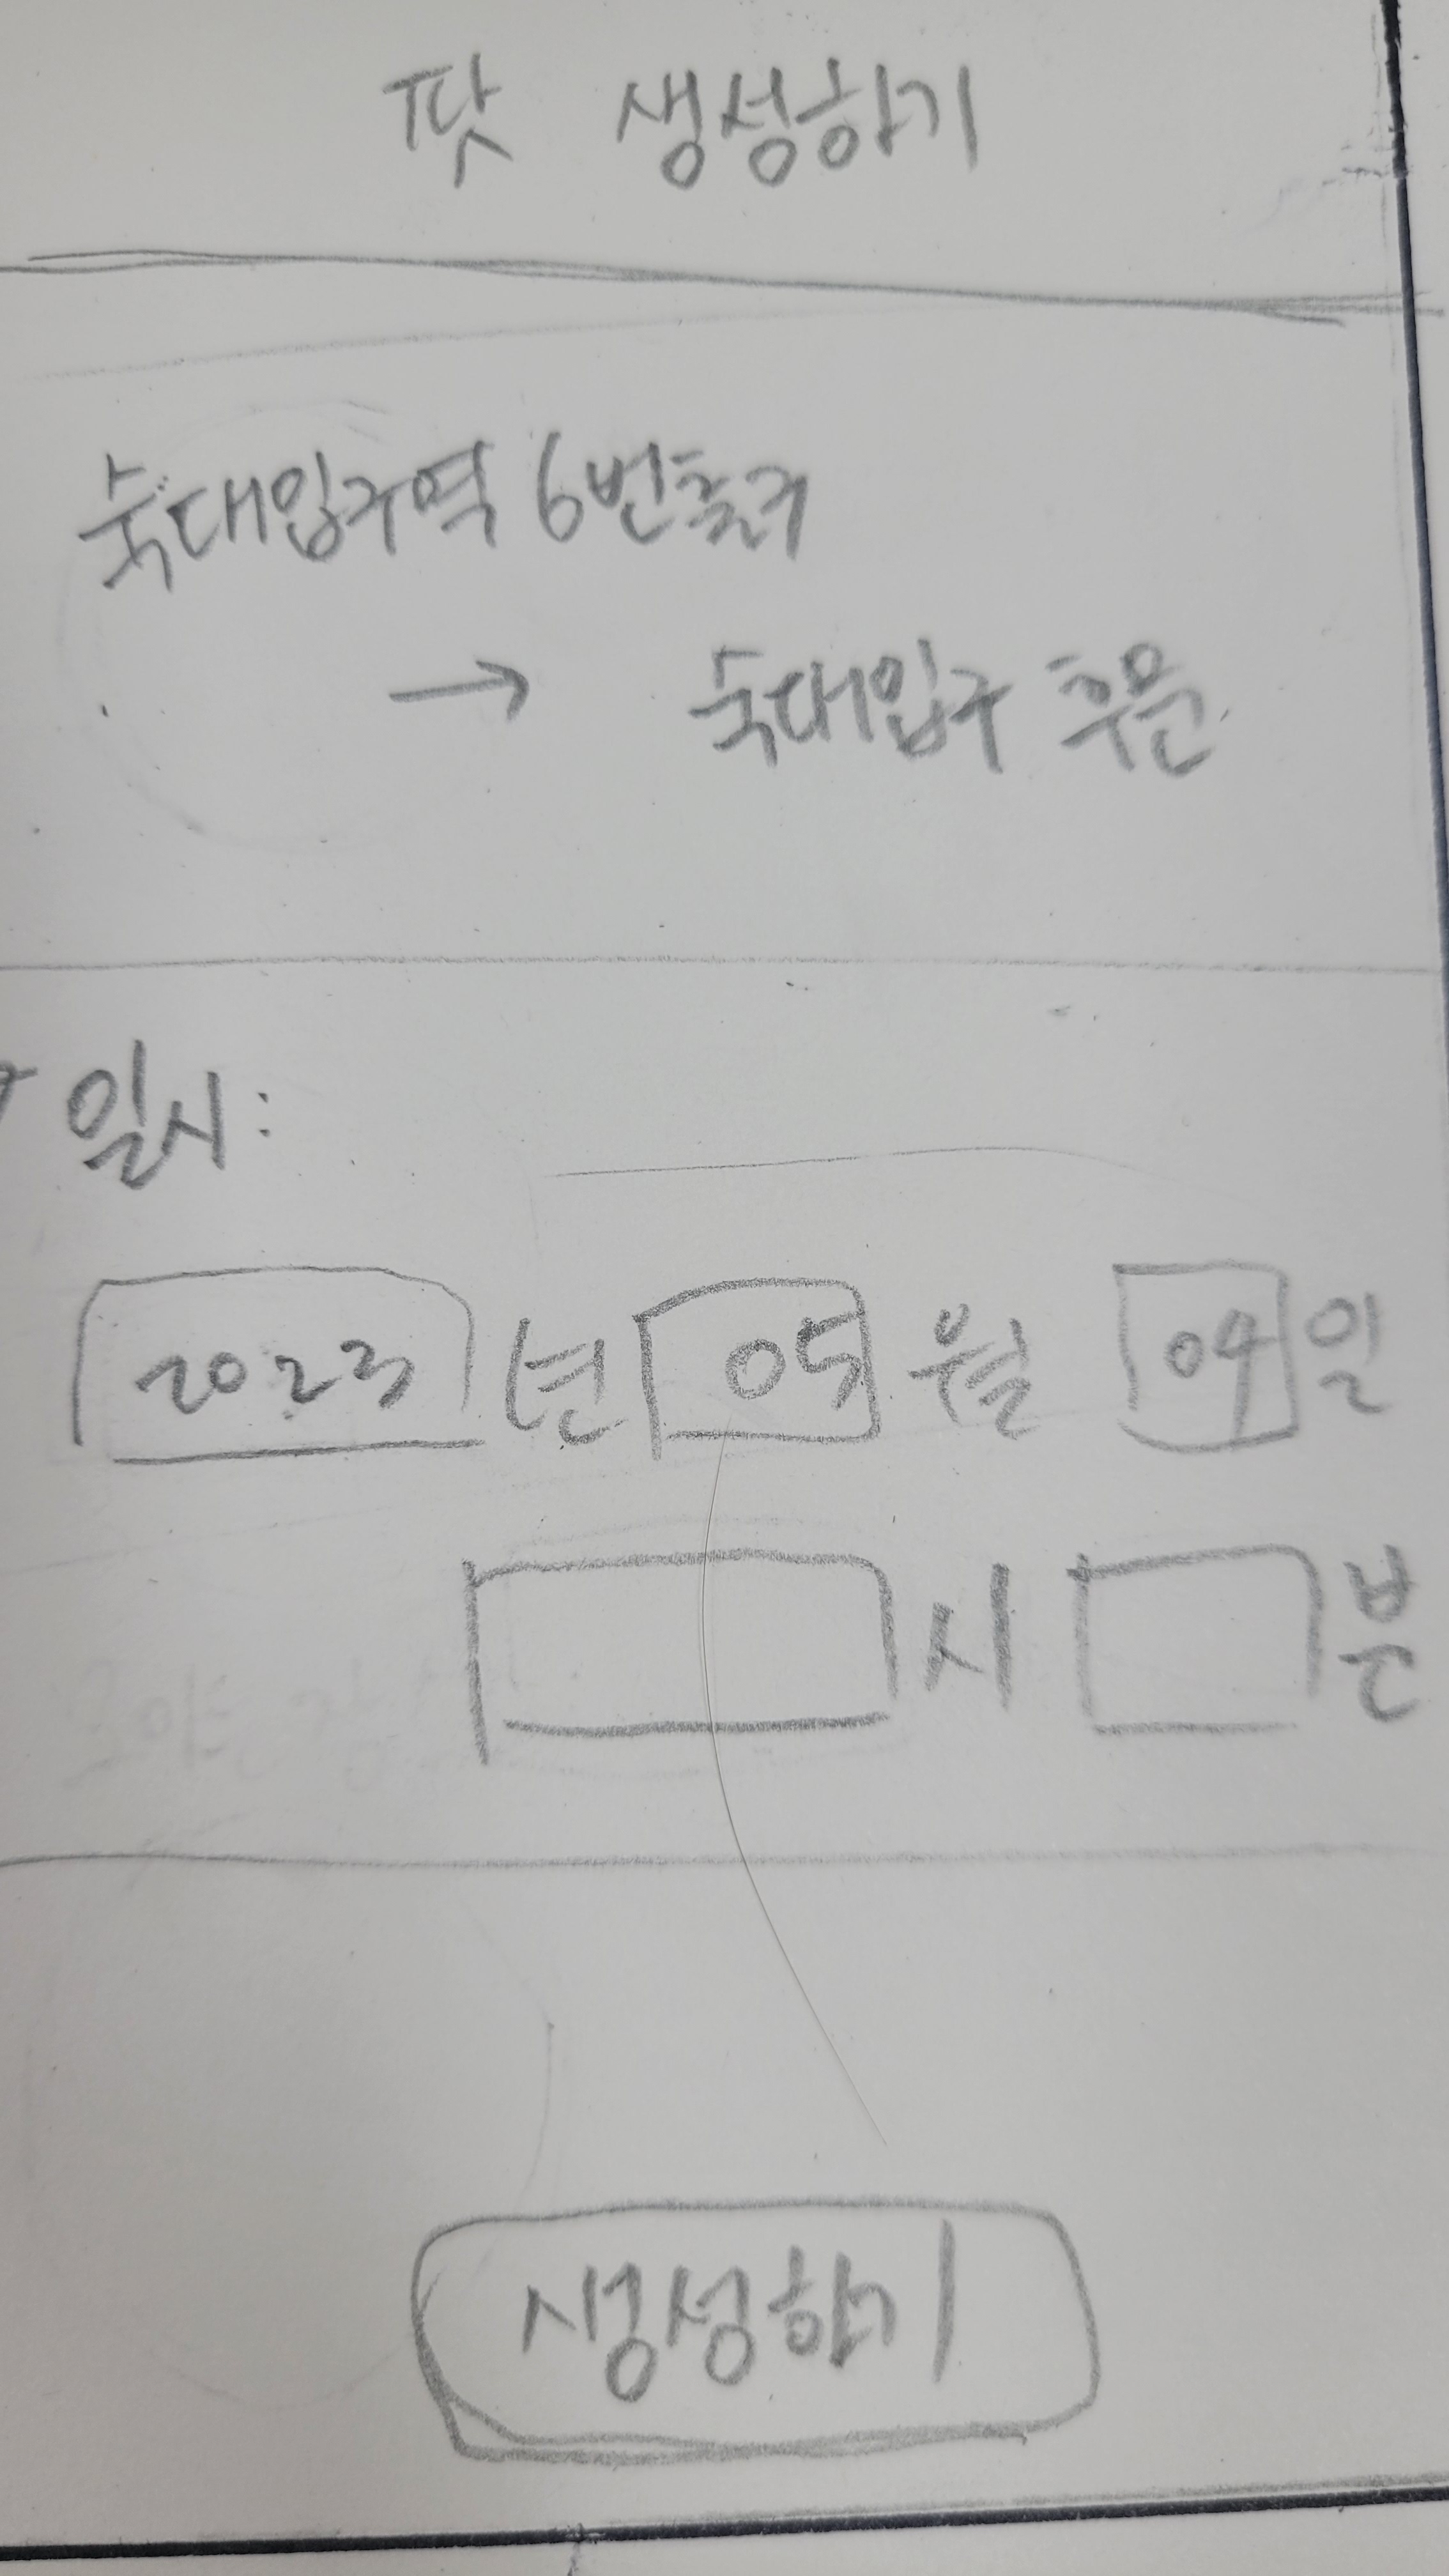 팟 생성하기
숙대입구역 6번출구
→ 숙대입구 후문
일시:
2023 년 05 월 04 일
시 분
생성하기